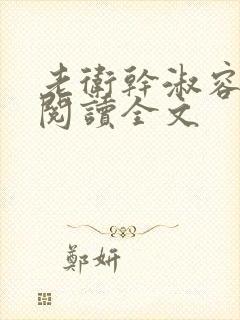 老衛幹淑容
閱讀全文
鄭妍